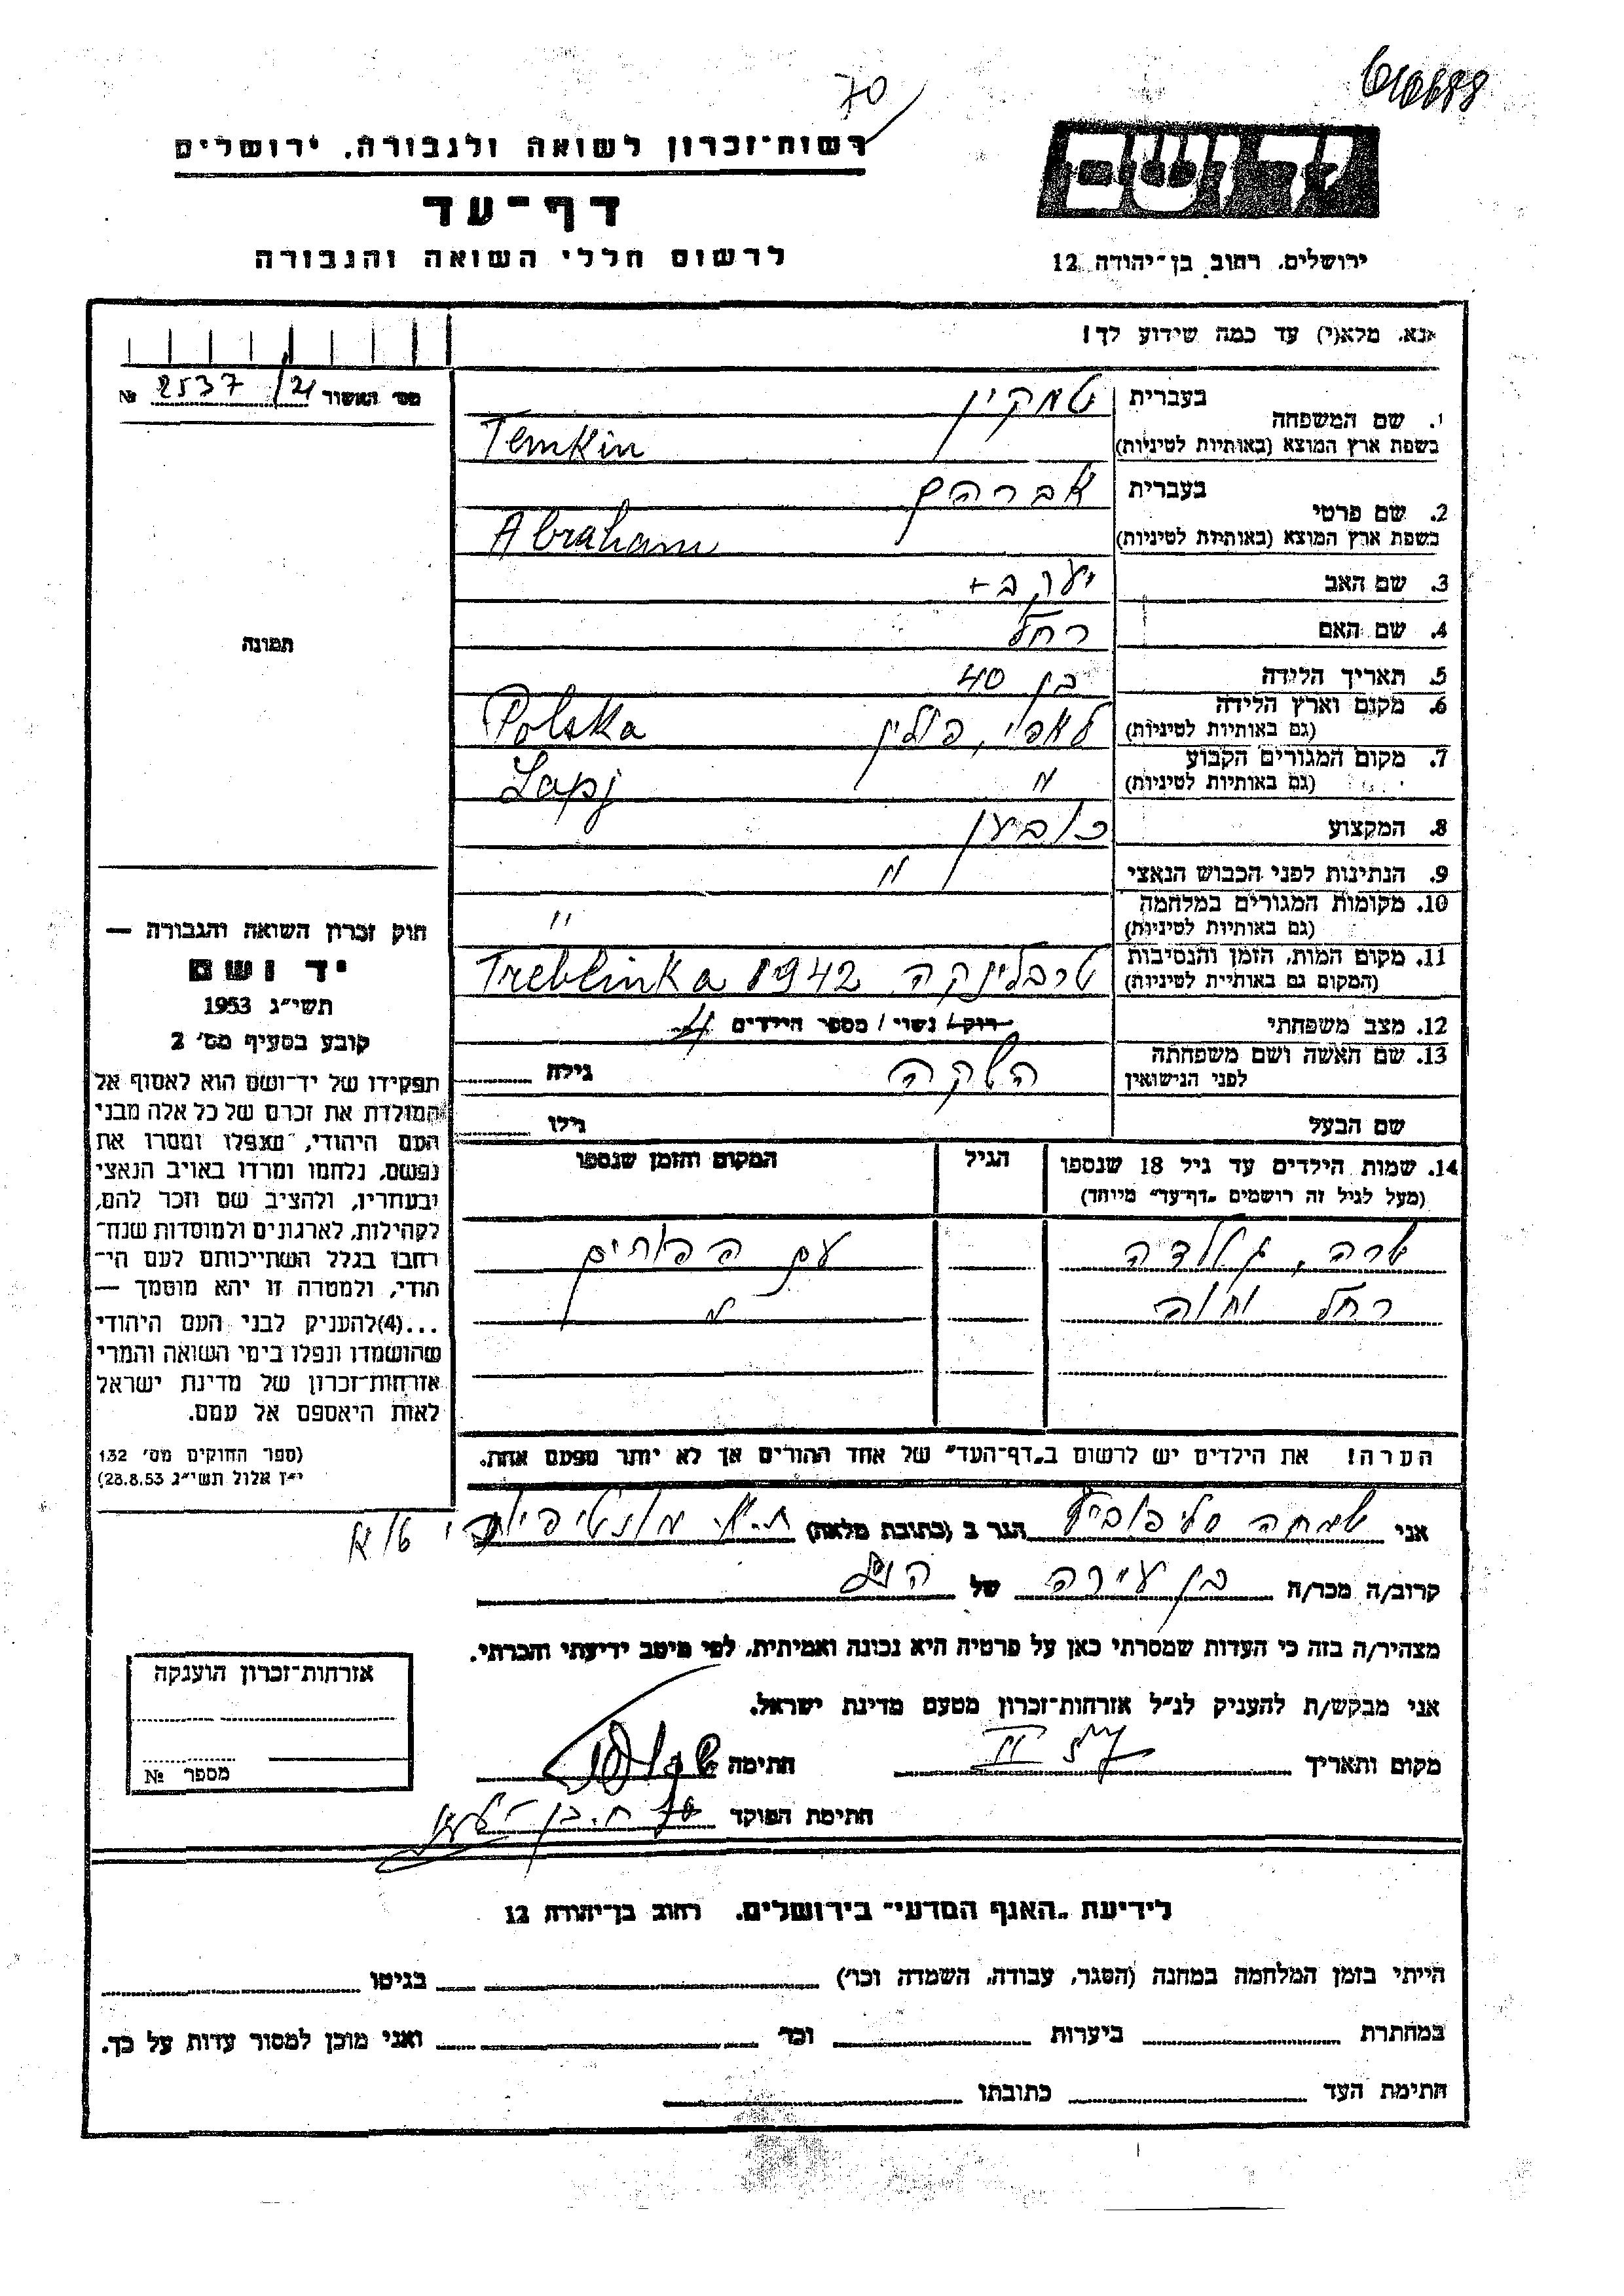 70
רשות־זכרון לשואה ולגבורה, ירושלים
דף־עד
לרשום חללי השואה והגבורה
ירושלים, רחוב בן־יהודה 12
אנא, מלא(י) עד כמה שידוע לך!
מס' האשור 2537/21 №
1. שם המשפחה בעברית טמקין
בשפת ארץ המוצא (באותיות לטיניות) Temkin
2. שם פרטי בעברית אברהם
בשפת ארץ המוצא (באותיות לטיניות) Abraham
3. שם האב יעקב
4. שם האם רחל
תמונה
5. תאריך הלידה בן 40
6. מקום וארץ הלידה (גם באותיות לטיניות) לאפי, פולין Polska
7. מקום המגורים הקבוע (גם באותיות לטיניות) " Lapj
8. המקצוע כובען
9. הנתינות לפני הכבוש הנאצי "
10. מקומות המגורים במלחמה (גם באותיות לטיניות) "
11. מקום המות, הזמן והנסיבות (המקום גם באותיות לטיניות) טרבלינקה 1942 Treblinka
12. מצב משפחתי רווק / נשוי / מספר הילדים 4
13. שם האשה ושם משפחתה לפני הנישואין גילה
שם הבעל גילו
14. שמות הילדים עד גיל 18 שנספו הגיל המקום והזמן שנספו
(מעל לגיל זה רושמים „דף־עד" מיוחד)
שרה, גולדה עם ההורים
רחל וחוה "
הערה! את הילדים יש לרשום ב„דף־העד" של אחד ההורים אך לא יותר מפעם אחת.
חוק זכרון השואה והגבורה —
יד ושם
תשי״ג 1953
קובע בסעיף מס' 2
תפקידו של יד־ושם הוא לאסוף אל
המולדת את זכרם של כל אלה מבני
העם היהודי, שנפלו ומסרו את
נפשם, נלחמו ומרדו באויב הנאצי
ובעוזריו, ולהציב שם וזכר להם,
לקהילות, לארגונים ולמוסדות שנח־
רבו בגלל השתייכותם לעם הי־
הודי, ולמטרה זו יהא מוסמך —
...(4) להעניק לבני העם היהודי
שהושמדו ונפלו בימי השואה והמרי
אזרחות־זכרון של מדינת ישראל
לאות היאספם אל עמם.
(ספר החוקים מס' 132
י״ז אלול תשי״ג 28.8.53)
אני שמחה הגר ב (כתובת מלאה) ת.א.
קרוב/ה מכר/ה בן עירה של הנ"ל
מצהיר/ה בזה כי העדות שמסרתי כאן על פרטיה היא נכונה ואמיתית, לפי מיטב ידיעתי והכרתי.
אני מבקש/ת להעניק לנ״ל אזרחות־זכרון מטעם מדינת ישראל.
מקום ותאריך חתימה
חתימת הפוקד
אזרחות־זכרון הוענקה
מספר №
לידיעת „האגף המדעי" בירושלים, רחוב בן־יהודה 12
הייתי בזמן המלחמה במחנה (הסגר, עבודה, השמדה וכו') בגיטו
במחתרת ביערות וכו' ואני מוכן למסור עדות על כך.
חתימת העד כתובתו